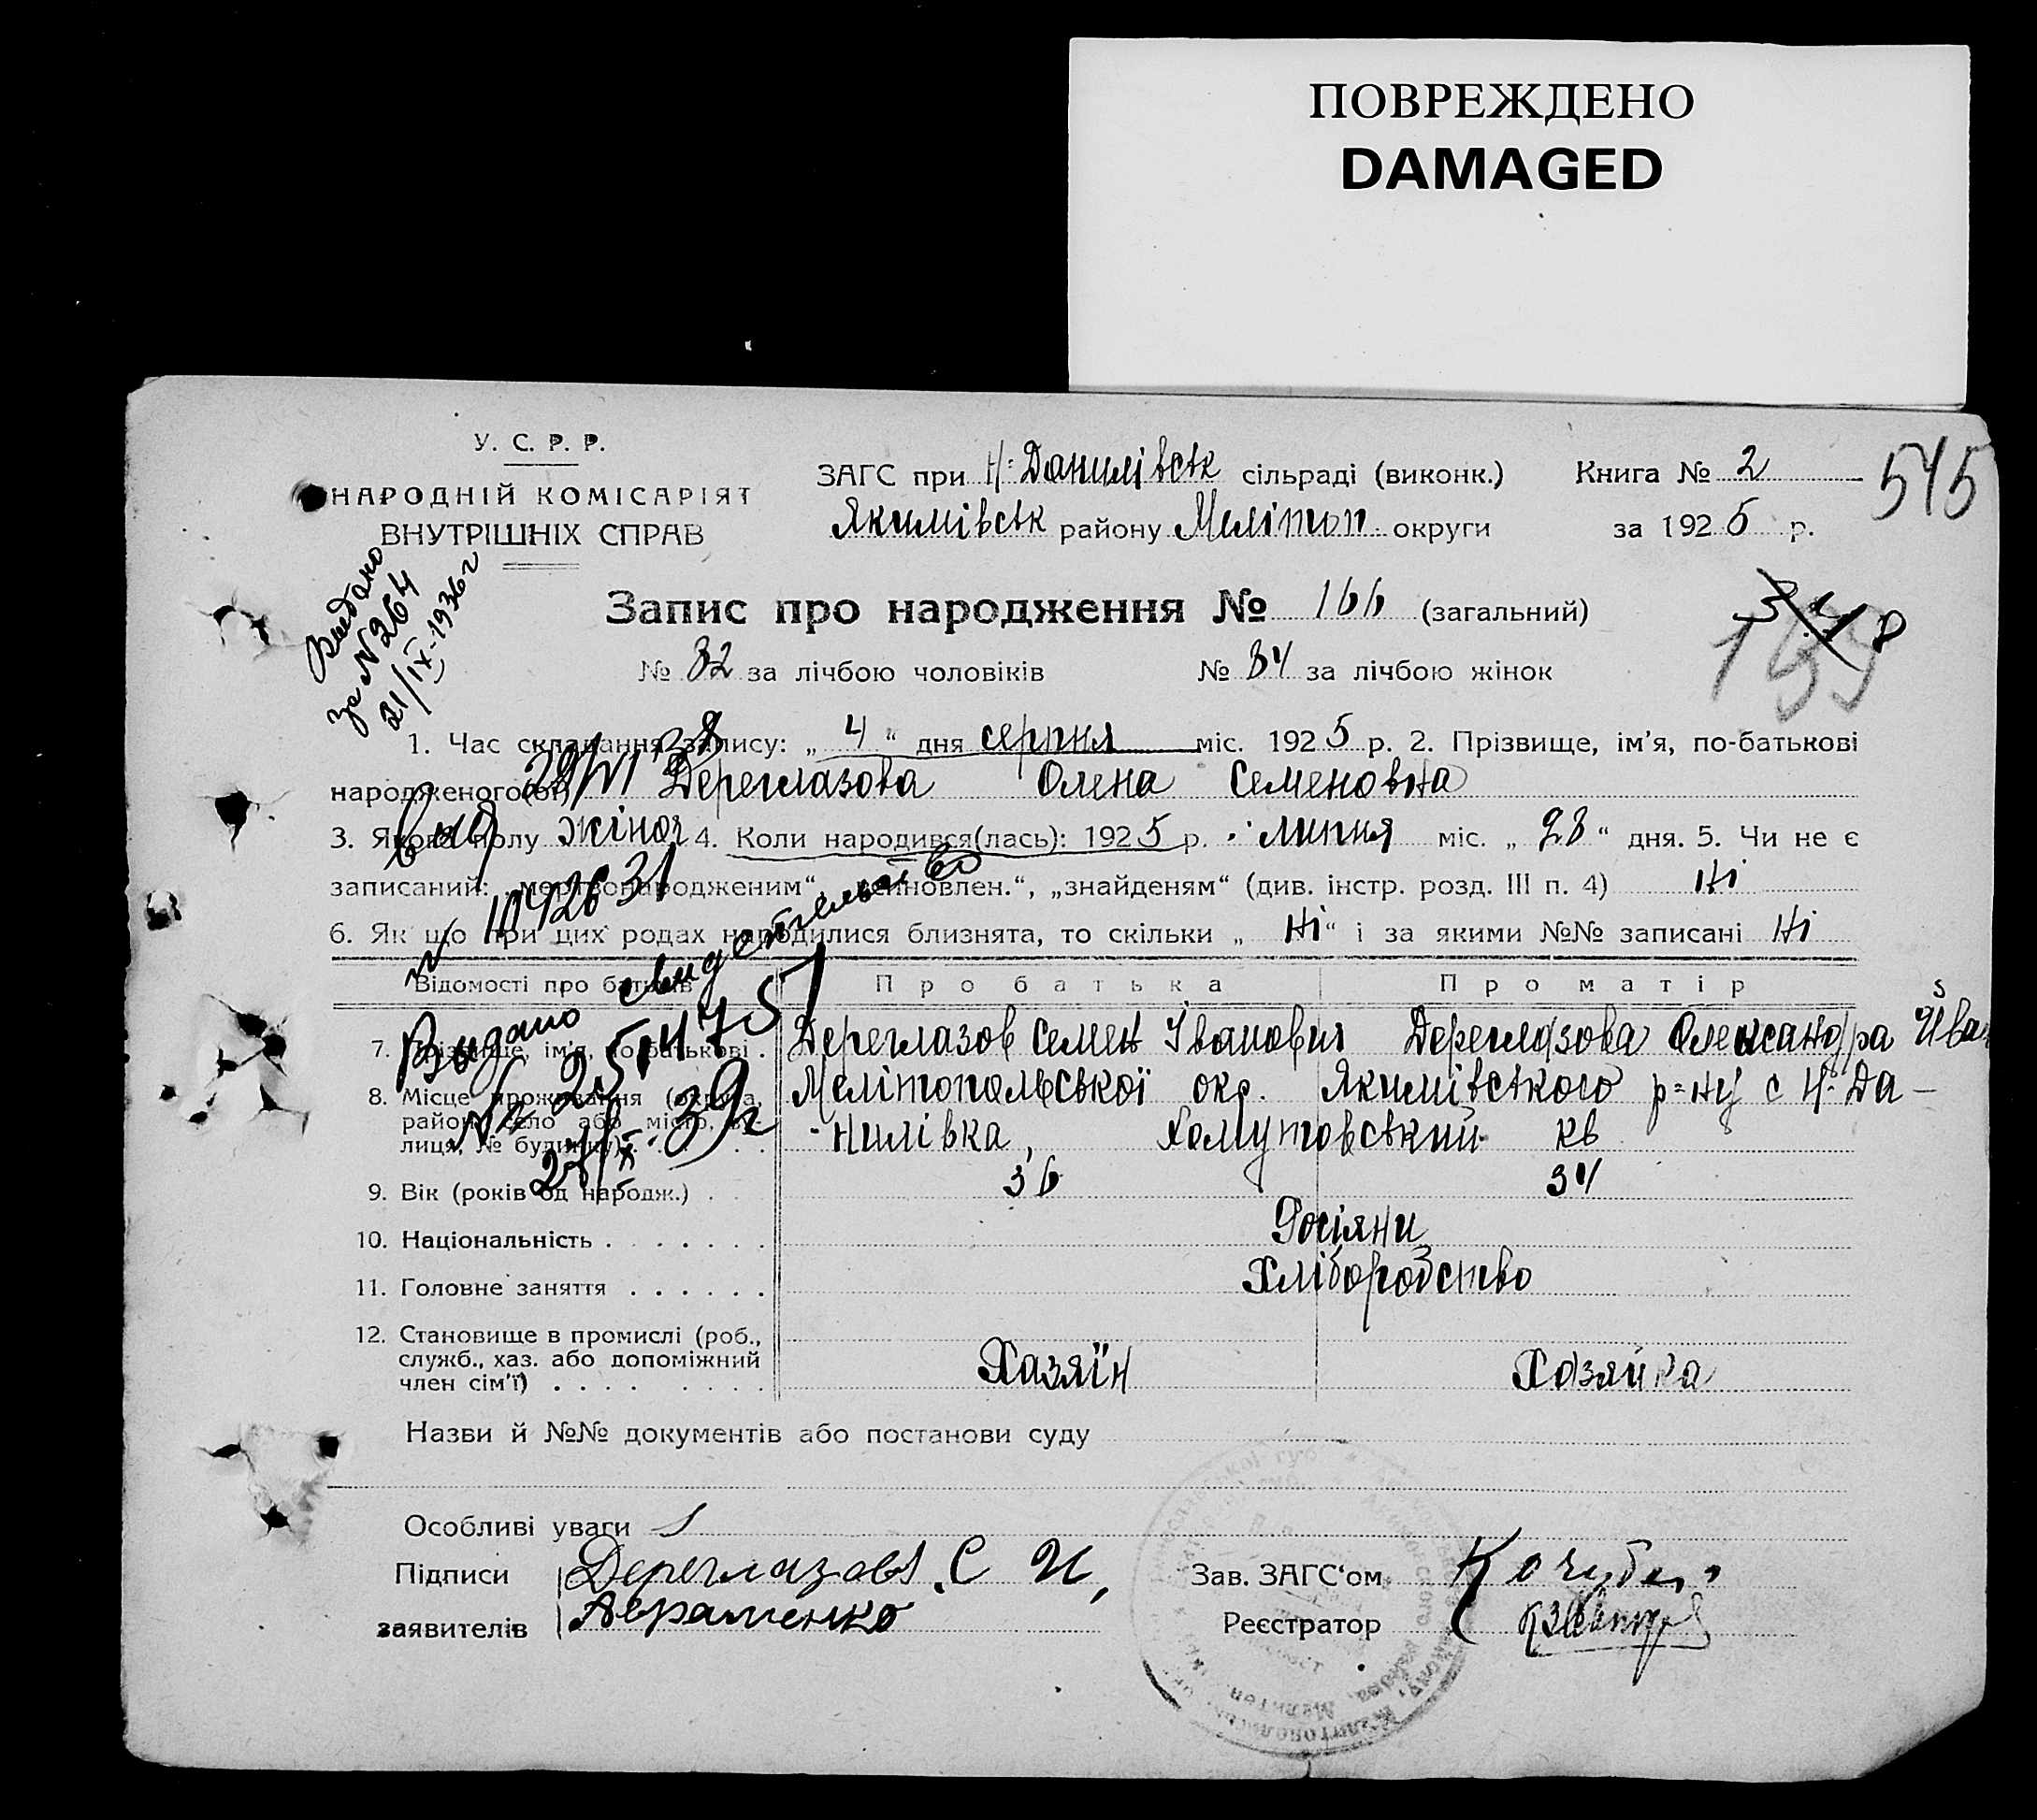 ПОВРЕЖДЕНО
DAMAGED
У. С. Р. Р.
НАРОДНІЙ КОМІСАРІЯТ
ВНУТРІШНІХ СПРАВ
ЗАГС при Н-Данилівськ сільраді (виконк.)
Якимівськ району Мелітоп. округи
Книга № 2
за 1925 р.
545
Видано
за N 264
21/IX-1936 г
Запис про народження № 166 (загальний)
348
159
№ 82 за лічбою чоловіків № 84 за лічбою жінок
1. Час складання запису: „ 4 “ дня серпня міс. 1925 р. 2. Прізвище, ім’я, по-батькові
народженого(ої) Дереглазова Олена Семеновна
3. Якого полу жіноч 4. Коли народився(лась): 1925 р. липня міс. „ 28 “ дня. 5. Чи не є
записаний: „мертвонародженим“, „всиновлен.“, „знайденям“ (див. інстр. розд. III п. 4) Ні
6. Як що при цих родах народилися близнята, то скільки „ Ні “ і за якими №№ записані Ні
Відомості про батьків
Про батька
Про матір
7. Прізвище, ім’я, по-батькові .
Дереглазов Семен Іванович
Дереглазова Олександра Іва
8. Місце проживання (округа, район, село або місто, вулиця, № будинку)
Мелітопольської окр. Якимівського р-ну с Н-Да-
нилівка, Хомутовський кв
9. Вік (років од народж.) . . 36 34
10. Національність . . . . . . . Росіяни
11. Головне заняття . . . . . . Хліборобство
12. Становище в промислі (роб.,
служб., хаз. або допоміжний
член сім’ї) . . . . . . . .
Хазяїн
Хазяйка
Видано
свидетельство
Назви й №№ документів або постанови суду
Особливі уваги
Підписи
заявителів
Дереглазов С И,
Авраменко
Зав. ЗАГС‘ом Кочубей
Реєстратор